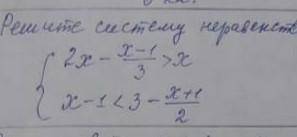 Решите систему неравенств
2x - \frac{x-1}{3} > x
x - 1 < 3 - \frac{x+1}{2}